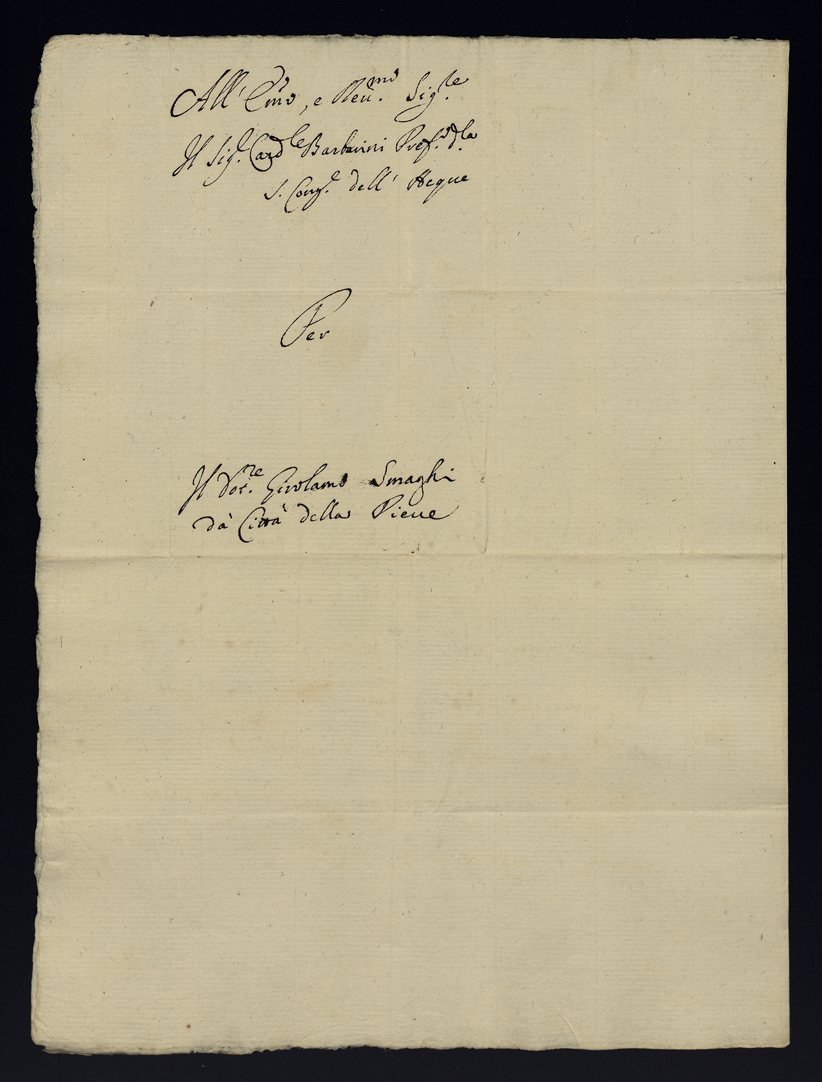 All' Em̃o, e Reu.mo Sig.le
Il Sig.e Card.le Barberini Pref.o d.la
S. Cong.e dell' Acque
Per
Il Dot.re Girolamo Smaghi
dà Città della Pieue